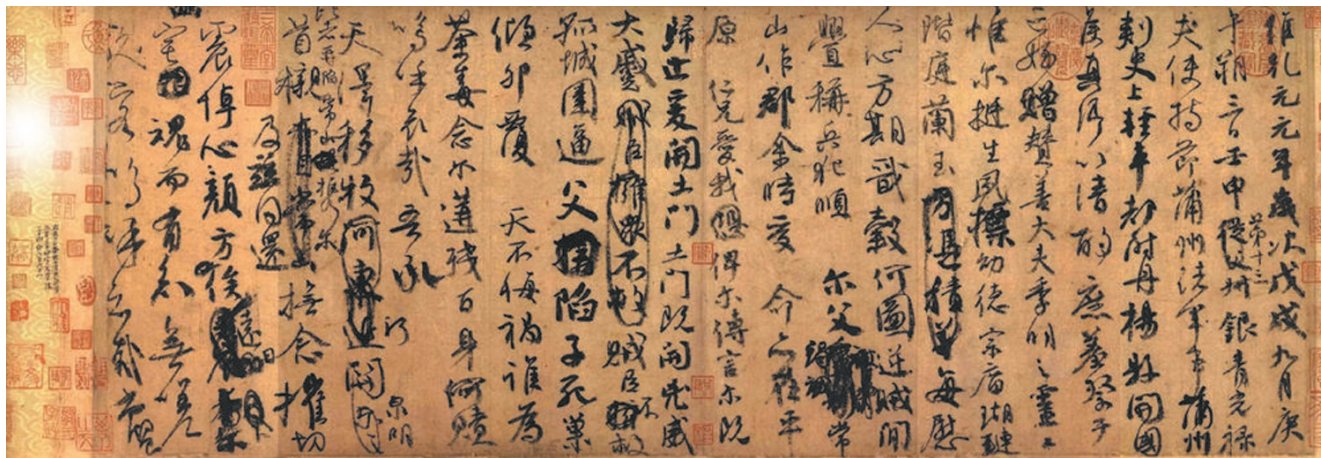 維乾元元年歲次戊戌九月庚
午朔三日壬申第十三從父叔銀青光祿
夫使持節蒲州諸軍事蒲州
刺史上輕車都尉丹楊縣開國
侯真卿以清酌庶羞祭于
亡姪贈贊善大夫季明之靈曰
惟爾挺生夙標幼德宗廟瑚璉
階庭蘭玉方憑積善每慰
人心方期戩穀何圖逆賊閒
釁稱兵犯順爾父竭誠常
山作郡余時受命亦在平
原仁兄愛我俾爾傳言爾既
歸止爰開土門土門既開凶威
大蹙賊臣擁眾不救賊臣不救
孤城圍逼父陷子死巢
傾卵覆天不悔禍誰為
荼毒念爾遘殘百身何贖
嗚呼哀哉吾承
天澤移牧河關泉明
比者再陷常山攜爾
首櫬及茲同還撫念摧切
震悼心顏方俟遠日
宅魂而有知無嗟
久客嗚呼哀哉尚饗